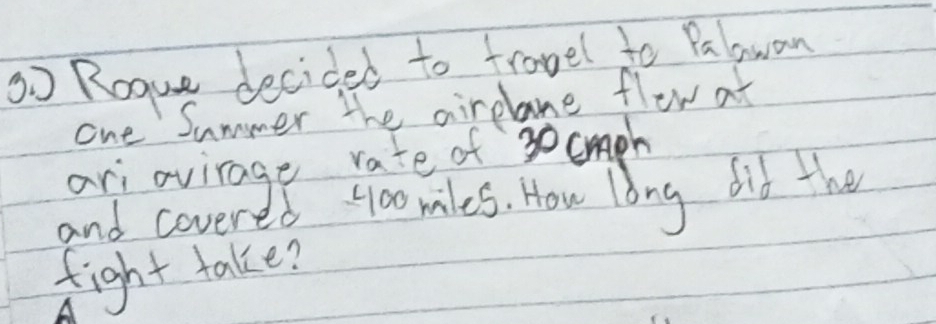 3.) Roque decided to travel to Palawan
one Summer the airplane flew at
ari avirage rate of 30cmph
and covered 400 miles. How long did the
fight take?
A